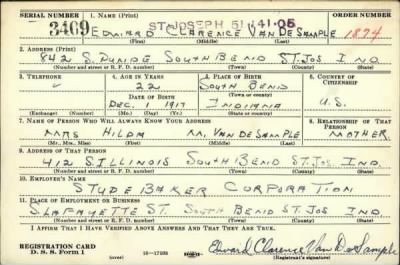 SERIAL NUMBER 1. NAME (Print) ORDER NUMBER
3469 ST JOSEPH 51 141-05
EDWARD CLARENCE VAN DE SAMPLE 1874
(First) (Middle) (Last)
2. ADDRESS (Print)
842 S. SOUTH BEND ST. JOS IND.
(Number and street or R. F. D. number) (Town) (County) (State)
3. TELEPHONE 4. AGE IN YEARS 5. PLACE OF BIRTH 6. COUNTRY OF CITIZENSHIP
22 SOUTH BEND
(Town or county)
DATE OF BIRTH
DEC. 1 1917 INDIANA U.S.
(Exchange) (Number) (Mo.) (Day) (Yr.) (State or country)
7. NAME OF PERSON WHO WILL ALWAYS KNOW YOUR ADDRESS 8. RELATIONSHIP OF THAT PERSON
MRS HILDA M. VAN DE SAMPLE MOTHER
(Mr., Mrs., Miss) (First) (Middle) (Last)
9. ADDRESS OF THAT PERSON
412 S. ILLINOIS SOUTH BEND ST. JOS. IND.
(Number and street or R. F. D. number) (Town) (County) (State)
10. EMPLOYER'S NAME
STUDEBAKER CORPORATION
11. PLACE OF EMPLOYMENT OR BUSINESS
S. LAFAYETTE ST. SOUTH BEND ST JOS IND
(Number and street or R. F. D. number) (Town) (County) (State)
I AFFIRM THAT I HAVE VERIFIED ABOVE ANSWERS AND THAT THEY ARE TRUE.
REGISTRATION CARD
D. S. S. FORM 1 (over) 16—17105 Edward Clarence Van De Sample
(Registrant's signature)